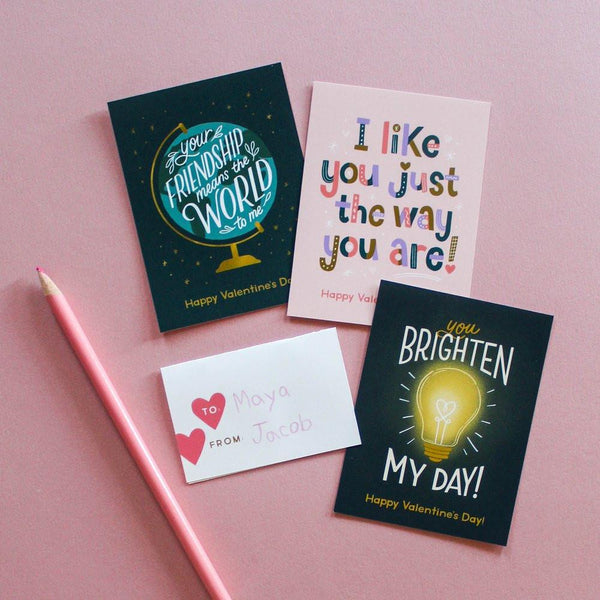 your
FRIENDSHIP
means the
WORLD
to me
Happy Valentine's D
I like
you just
the way
you are!
Happy Val
you
BRIGHTEN
MY DAY!
Happy Valentine's Day!
TO: Maya
FROM: Jacob